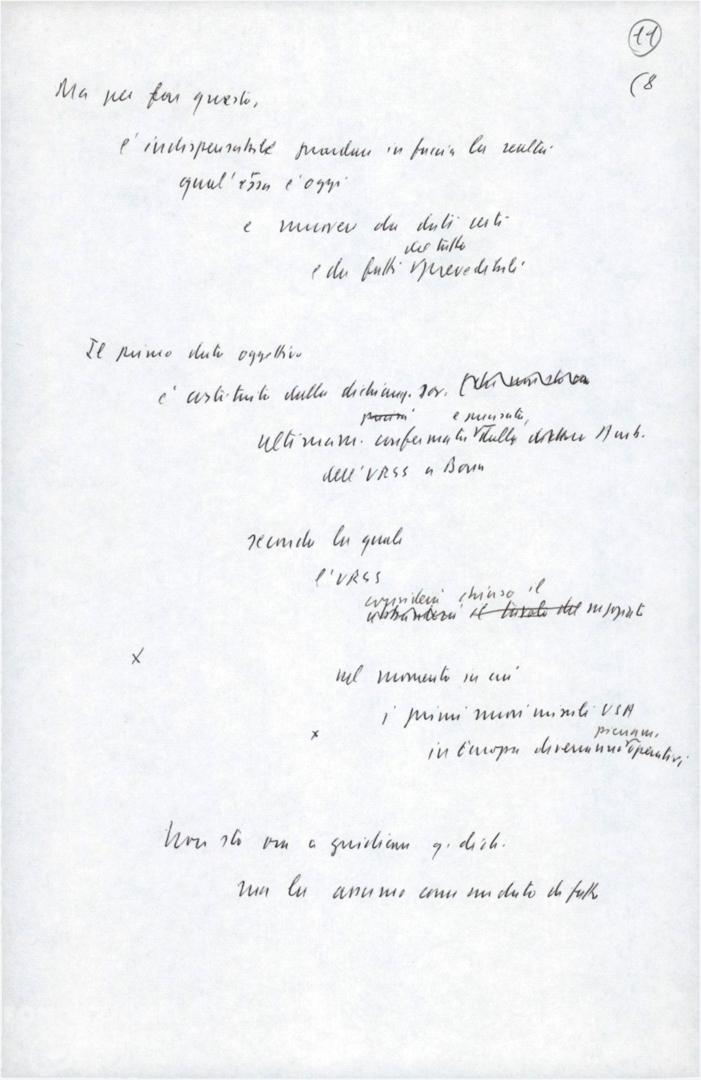 11
(8
Ma per far questo,
è indispensabile guardare in faccia la realtà
qual'essa è oggi
e muover da dati certi
del tutto
e da fatti prevedibili
Il primo dato oggettivo
è costituito dalla dichiaraz. sov.
e precisata,
ultimam. confermata dalla Amb.
dell'URSS a Bonn
secondo la quale
l'URSS
considera chiuso il
il tavolo del negoziato
x
nel momento in cui
i primi nuovi missili USA
x
pienam.
in Europa diveranno operativi
Non sto ora a giudicare q. dich.
ma la assumo come un dato di fatto